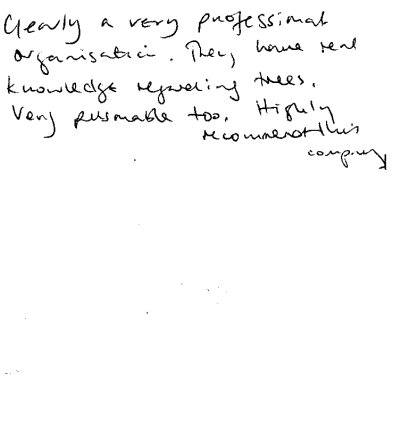 Clearly a very professional
organisation. They have real
knowledge regarding trees.
Very personable too. Highly
recommend this
company